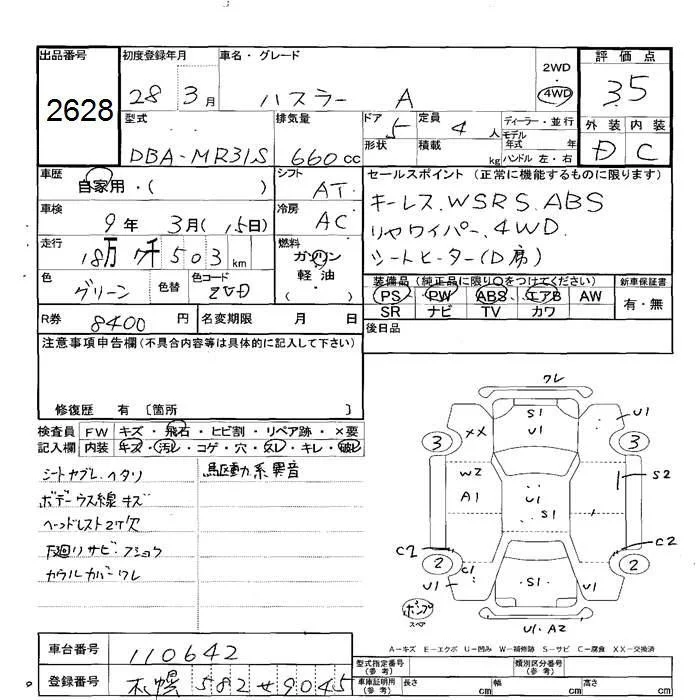 出品番号 初度登録年月 車名・グレード 2WD 評価点
2628 28 3月 ハスラー A 4WD 3.5
型式 排気量 ドア 5 定員 4人 ディーラー・並行 外装 内装
DBA-MR31S 660cc 形状 積載 kg モデル年式 年 D C
ハンドル 左・右
車歴 自家用・( ) シフト AT セールスポイント (正常に機能するものに限ります)
車検 9年 3月( 15日) 冷房 AC キーレス.WSRS.ABS
走行 18万 7千503km 燃料 ガソリン リヤワイパー.4WD.
軽油 シートヒーター(D席)
( )
色 グリーン 色替 色コード ZVD 装備品 (純正品に限り○をつけてください) 新車保証書
PS・PW・ABS・エアB・AW 有・無
SR ナビ TV カワ
R券 8400円 名変期限 月 日 後日品
注意事項申告欄(不具合内容等は具体的に記入して下さい)
修復歴 有 〔箇所 〕
検査員 FW キズ・飛石・ヒビ割・リペア跡・×要
記入欄 内装 キズ・汚レ・コゲ・穴・スレ・キレ・破レ
シートヤブレ.ヘタリ 駆動系異音
ボデーウス線キズ
ヘッドレスト2ケ欠
下廻りサビ・フショク
カウルカバーワレ
ワレ
S1
XX U1 U1
3 3
W2 S2
A1 U1
S1
C2 C2
2 2
C1
U1 S1 U1
ポンプ
スペア
U1.A2
A-キズ E-エクボ U-凹み W-補修跡 S-サビ C-腐食 XX-交換済
車台番号 110642
型式指定番号(参考) 類別区分番号(参考)
登録番号 札幌 582 せ 9045
車庫証明用(参考) 長さ cm 幅 cm 高さ cm